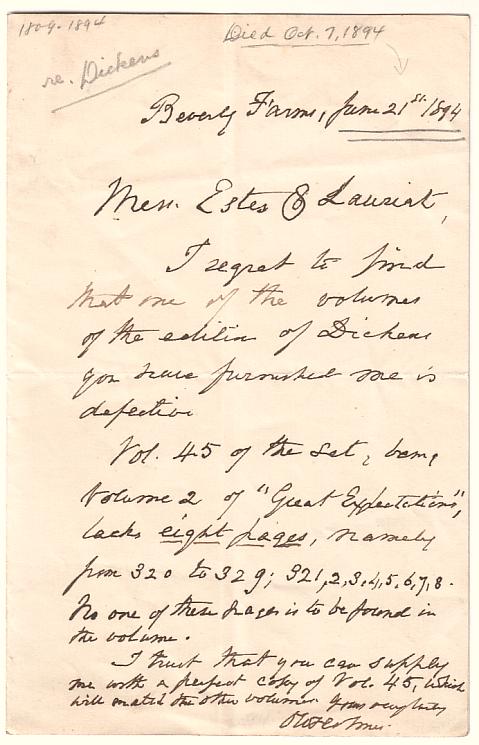 1809-1894
Died Oct. 7, 1894
re. Dickens
Beverly Farms, June 21st. 1894
Mess. Estes & Lauriat,
I regret to find
that one of the volumes
of the edition of Dickens
you have furnished me is
defective
Vol. 45 of the set, being
Volume 2 of "Great Expectations",
lacks eight pages, namely
from 320 to 329; 321,2,3,4,5,6,7,8.
No one of these pages is to be found in
the volume.
I trust that you can supply
me with a perfect copy of Vol. 45, which
will match the other volumes Yours very truly
O W Holmes.